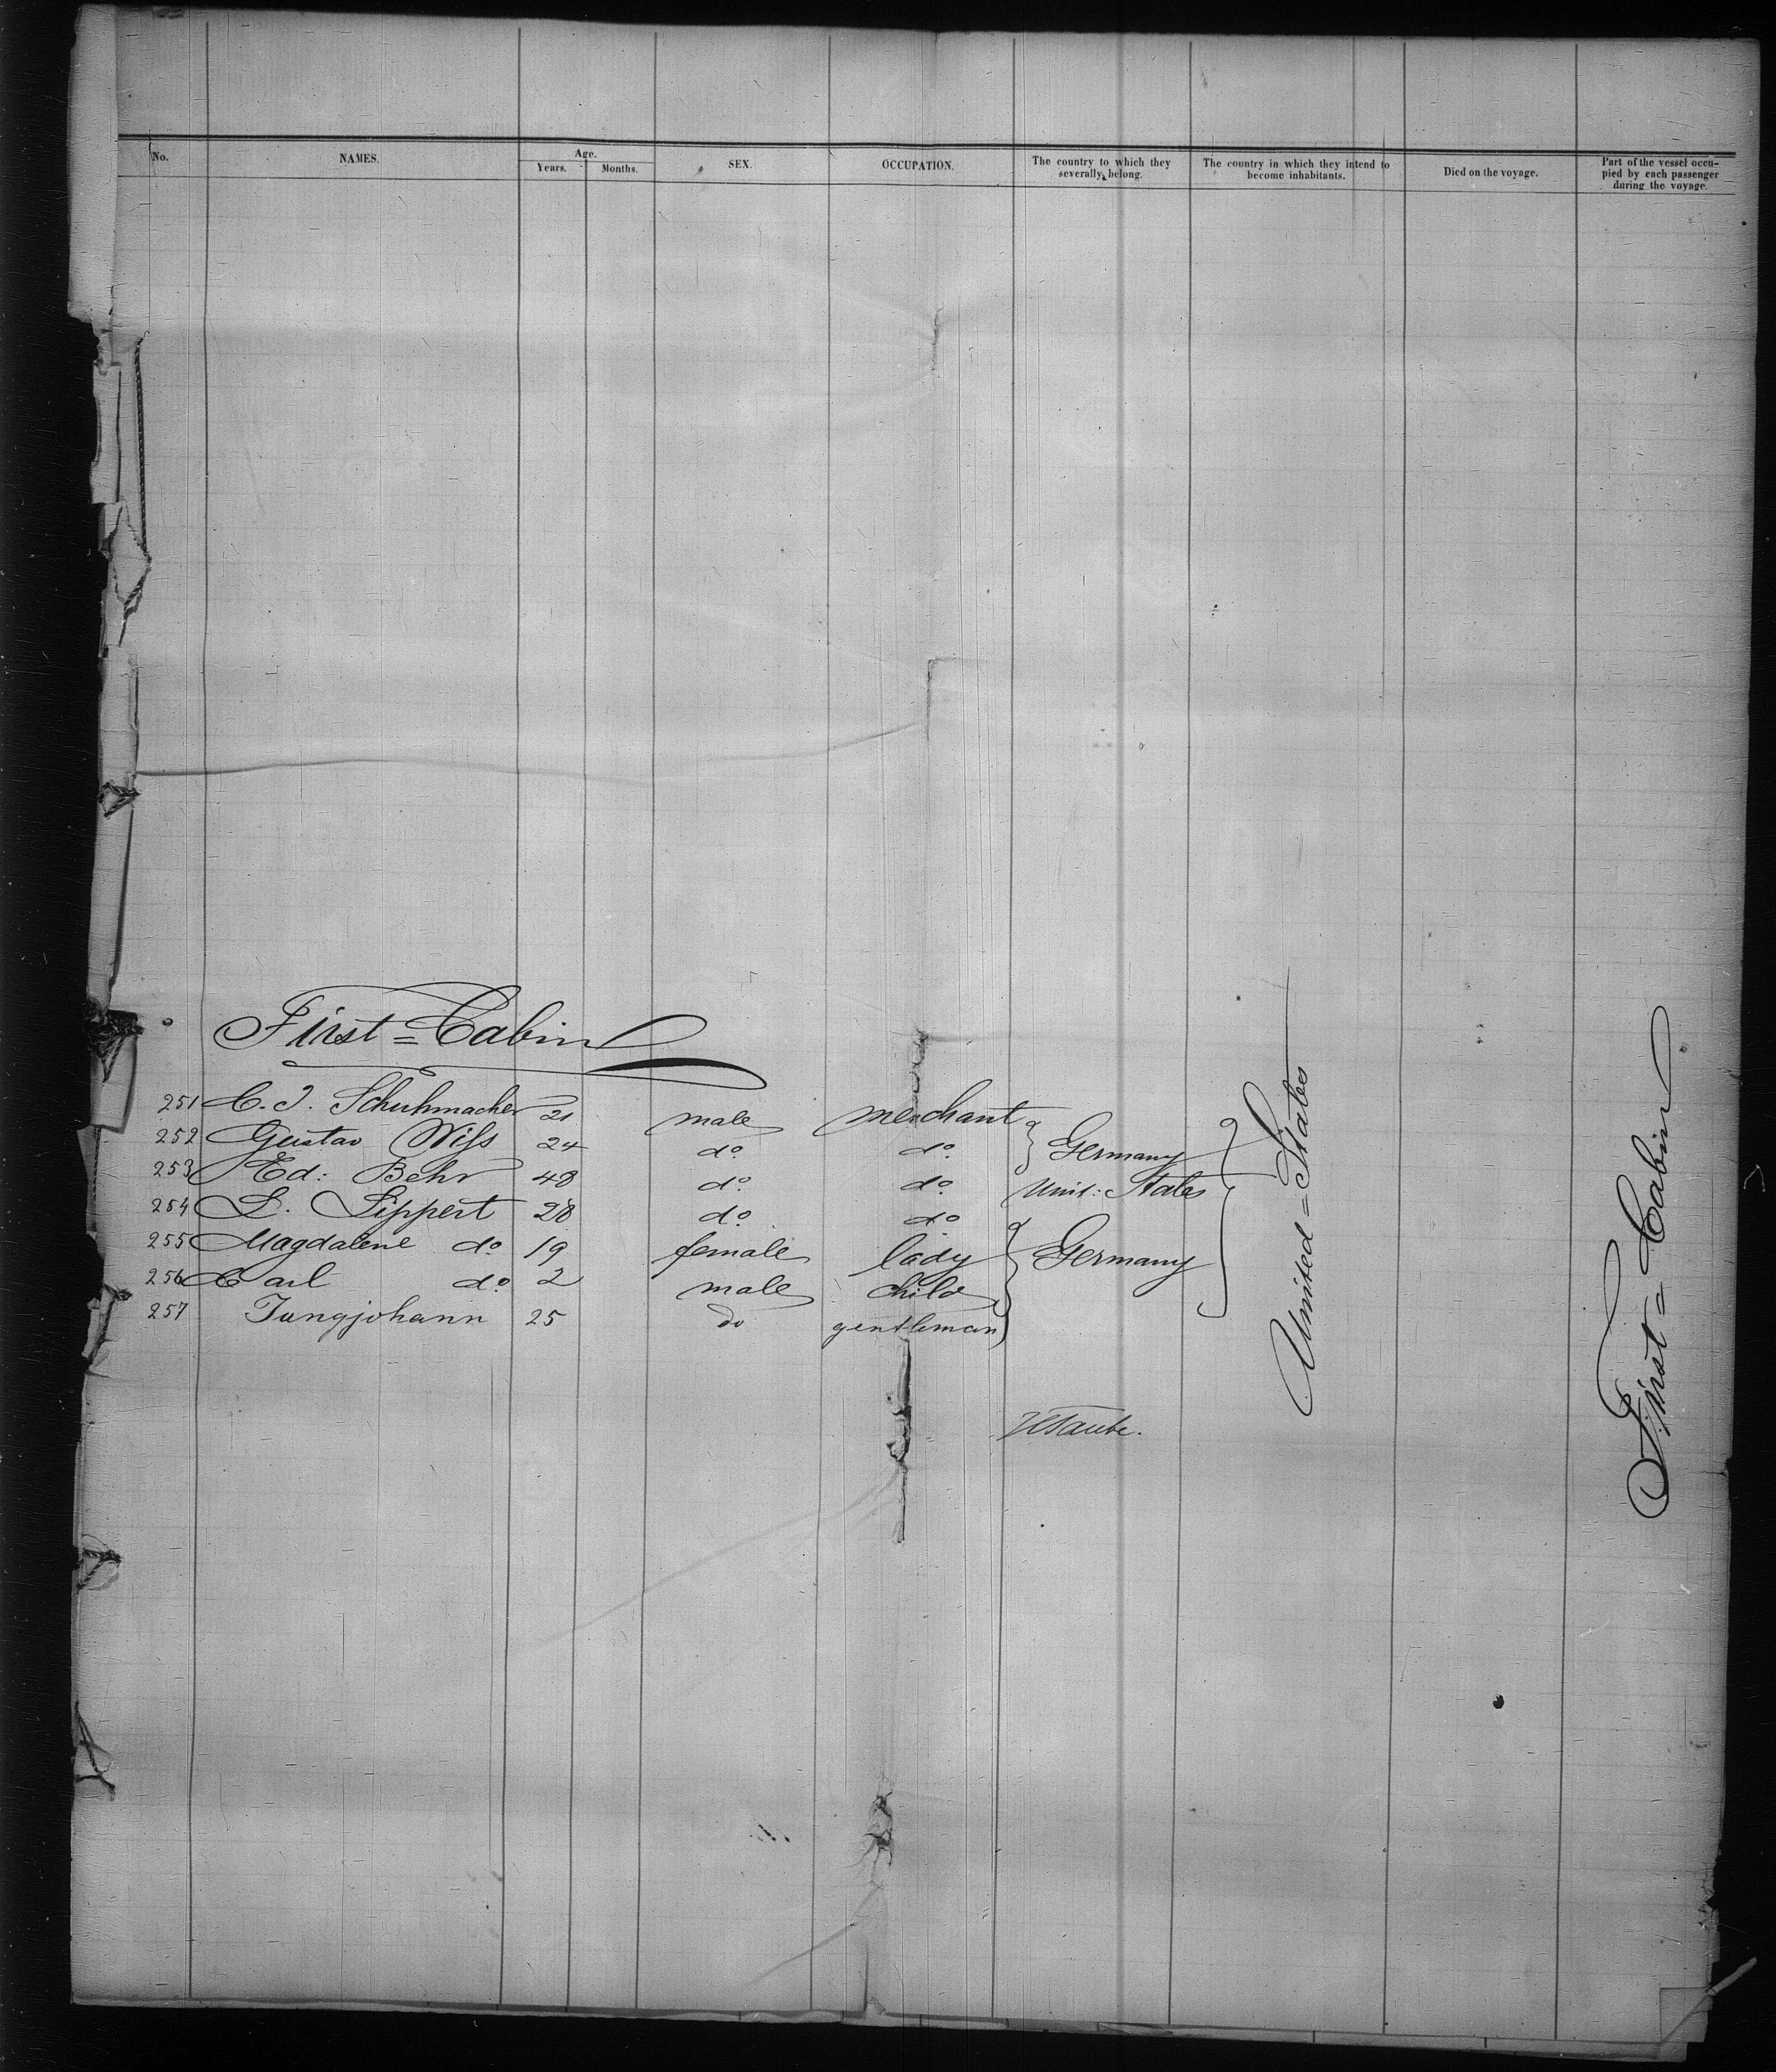 No. NAMES. Age. Years. Months. SEX. OCCUPATION. The country to which they severally belong. The country in which they intend to become inhabitants. Died on the voyage. Part of the vessel occupied by each passenger during the voyage.
First = Cabin
251 C. J. Schuhmacher 21 male merchant
252 Gustav Wiss 24 do do Germany
253 Ed: Behr 48 do do Unit: States
254 L. Lippert 28 do do
255 Magdalene do 19 female lady Germany
256 Carl do 2 male child
257 Jungjohann 25 do gentleman
United = States
First = Cabin